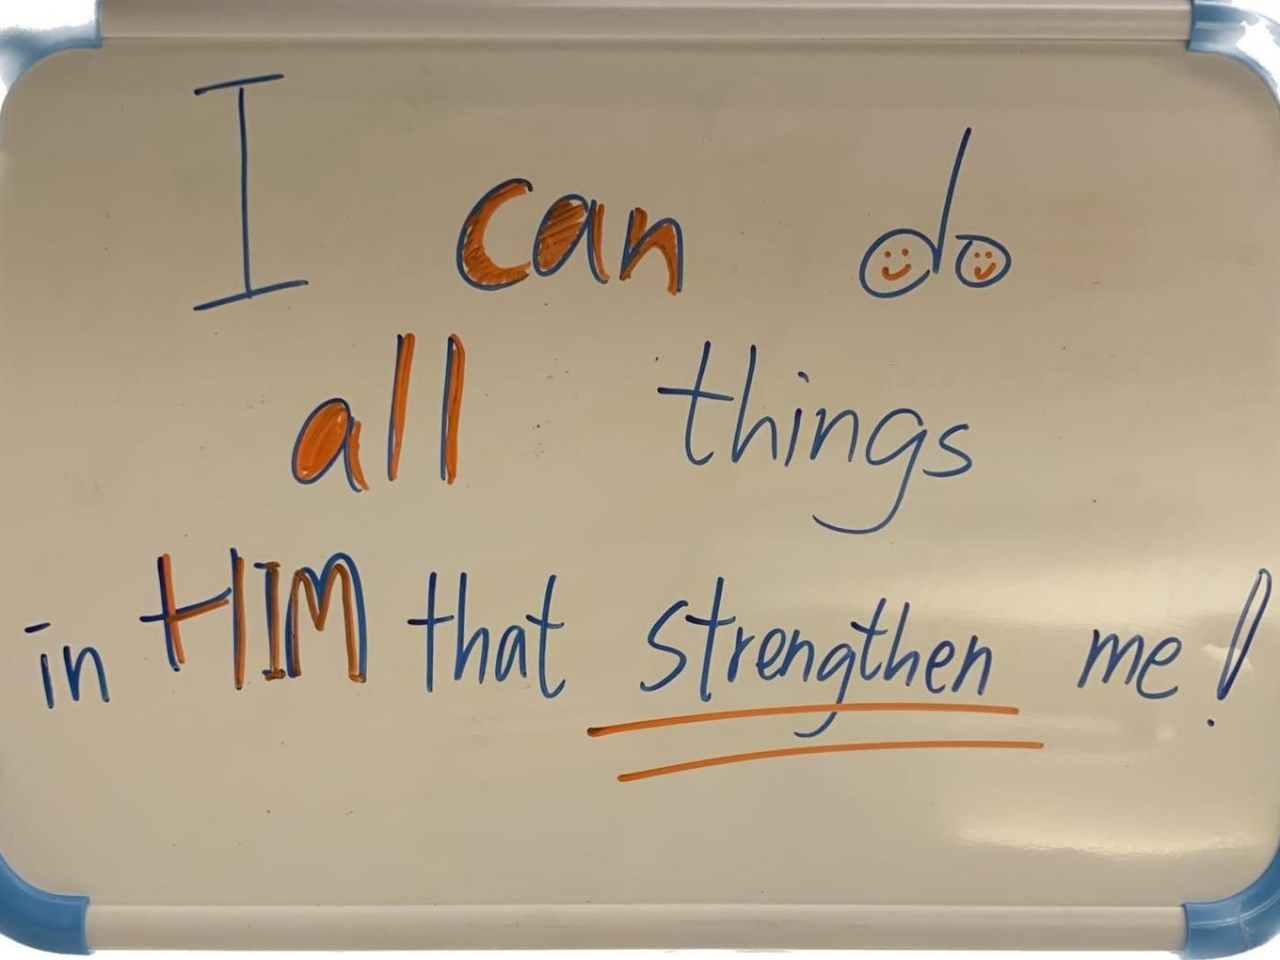 I can do
all things
in HIM that strengthen me!